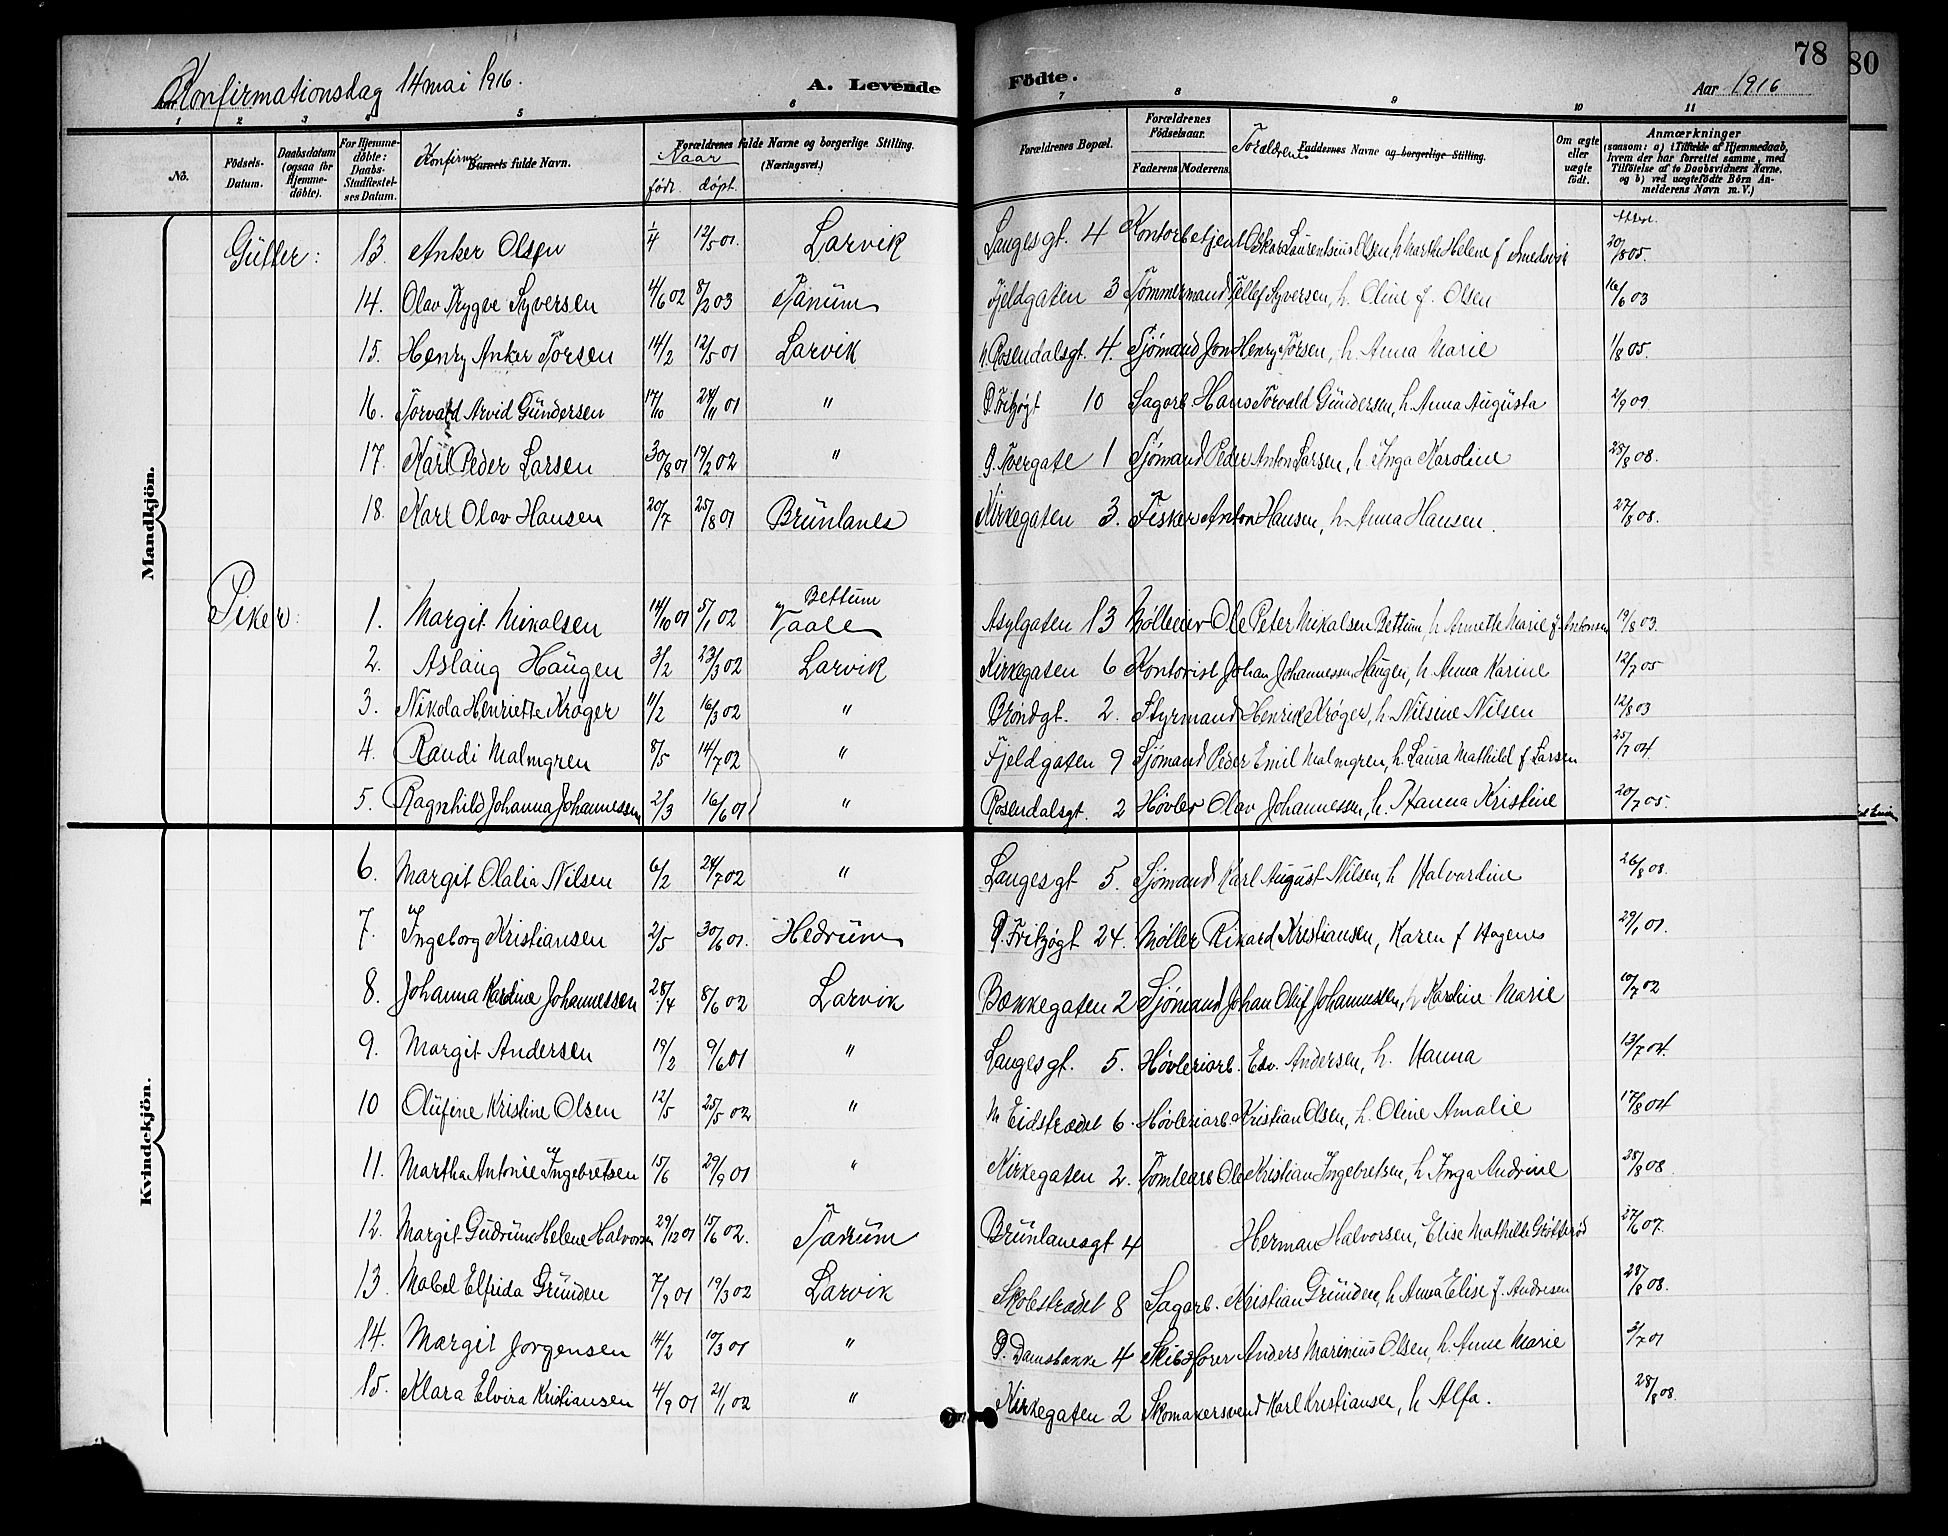 Konfirmationsdag 14 mai 1916. A. Levende Födte. Aar 1916 78 80
1 2 3 4 5 6 7 8 9 10 11
No. Födsels-Datum. Daabsdatum (ogsaa for Hjemme-döbte). For Hjemme-döbte: Daabs-Stadfæstel-ses Datum. Konfirm Barnets fulde Navn. Forældrenes fulde Navne og borgerlige Stilling. (Næringsvei.) Naar født. døpt.
Forældrenes Bopæl. Forældrenes Födselsaar. Faderens Moderens Forældrenes Faddernes Navne og borgerlige Stilling. Om ægte eller uægte født. Anmærkninger (saasom: a) i Tilfælde af Hjemmedaab, hvem der har forrettet samme, med Tilföielse af to Daabsvidners Navne, og b) ved uægtefødte Börn An-melderens Navn m. V.)
Mandkjön.
Gutter: 13. Anker Olsen 1/4 12/5 01. Larvik Langesgt. 4 Kontorbetjent Oskar Laurentsius Olsen, h. Martha Helene f 20/8 05.
14. Olav Trygve Syversen 4/6 02 8/2 03 Tanum Fjeldgaten 3 Tømmermand Tellef Syversen, h. Oline f. Olsen 16/6 03
15. Henry Anker Torsen 14/2 12/5 01 Larvik n. Rosendalsgt. 4. Sjømand Jon Henry Torsen, h. Anna Marie 1/8 05.
16. Torvald Arvid Gundersen 17/10 24/11 01 " Ø. Fritzøgt 10 Sagarb Hans Torvald Gundersen, h. Anna Augusta 2/9 09
17. Karl Peder Larsen 30/8 01 19/2 02 " Ø. Tvergate 1 Sjømand Peder Anton Larsen, h. Inga Karoline 28/8 08.
18. Karl Olav Hansen 20/7 25/8 01 Brunlanes Kirkegaten 3. Fisker Anton Hansen, h. Anna Hansen. 27/8 08.
Piker: 1. Margit Mikalsen 14/10 01 5/1 02 Bettum Vaale Asylgaten 13 Ole Peter Mikalsen Bettum, h. Annette Marie f. Antonsen 19/8 03.
2. Aslaug Haugen 3/2 23/3 02 Larvik Kirkegaten 6 Kontorist Johan Johannessen Haugen, h. Anna Karine 12/7 05
3. Nikola Henriette Krøger 11/2 16/3 02 " Brøndgt. 2. Styrmand Henrik Krøger, h. Nilsine Nilsen 12/8 03
4. Randi Malmgren 8/5 14/7 02 " Fjeldgaten 9 Sjømand Peder Emil Malmgren, h. Laura Mathild f Larsen 25/7 04.
5. Ragnhild Johanna Johannessen 2/3 16/6 01 " Rosendalsgt. 2 Høvler Olav Johannessen, h. Hanna Kristine 20/7 05.
Kvindekjön.
6. Margit Olalia Nilsen 6/2 24/7 02 " Langesgt 5. Sjømand Karl August Nilsen, h Halvardine 26/8 08.
7. Ingeborg Kristiansen 2/5 30/6 01. Hedrum Ø. Fritzøgt 24. Møller Rikard Kristiansen, Karen f Hagenes 29/1 01.
8. Johanna Karoline Johannessen 28/4 8/6 02 Larvik Bækkegaten 2 Sjømand Johan Oluf Johannessen, h Karoline Marie 10/7 02
9. Margit Andersen 19/2 9/6 01 " Langesgt. 5. Høvleriarb. Edv. Andersen, h. Hanna 13/7 04.
10 Olufine Kristine Olsen 12/5 25/5 02 " M Eidstrædet 6. Høvleriarb. Kristian Olsen, h. Oline Amalie 17/8 04
11. Martha Antonie Ingebretsen 15/6 29/9 01 " Kirkegaten 2. Tomtearb Ole Kristian Ingebretsen, h Inga Andrine 28/8 08.
12. Margit Gudrun Helene Halvorsen 29/12 01 15/6 02. Tanum Brunlanesgt 4 Herman Halvorsen, Elise Mathilde 27/6 07.
13. Mabel Elfrida Grunden 7/9 01 19/3 02 Larvik Skolestrædet 8 Sagarb. Kristian Grunden, h Anna Elise f. Andresen 28/8 08.
14. Margit Jørgensen 14/2 10/3 01 " Ø. Damsbakke 4 Skibsfører Anders Marinius Olsen, h. Anne Marie 3/7 01
15. Klara Elvira Kristiansen 4/9 01 21/1 02 " Kirkegaten 2 Skomakersvend Karl Kristiansen, h Alfa. 28/8 08.